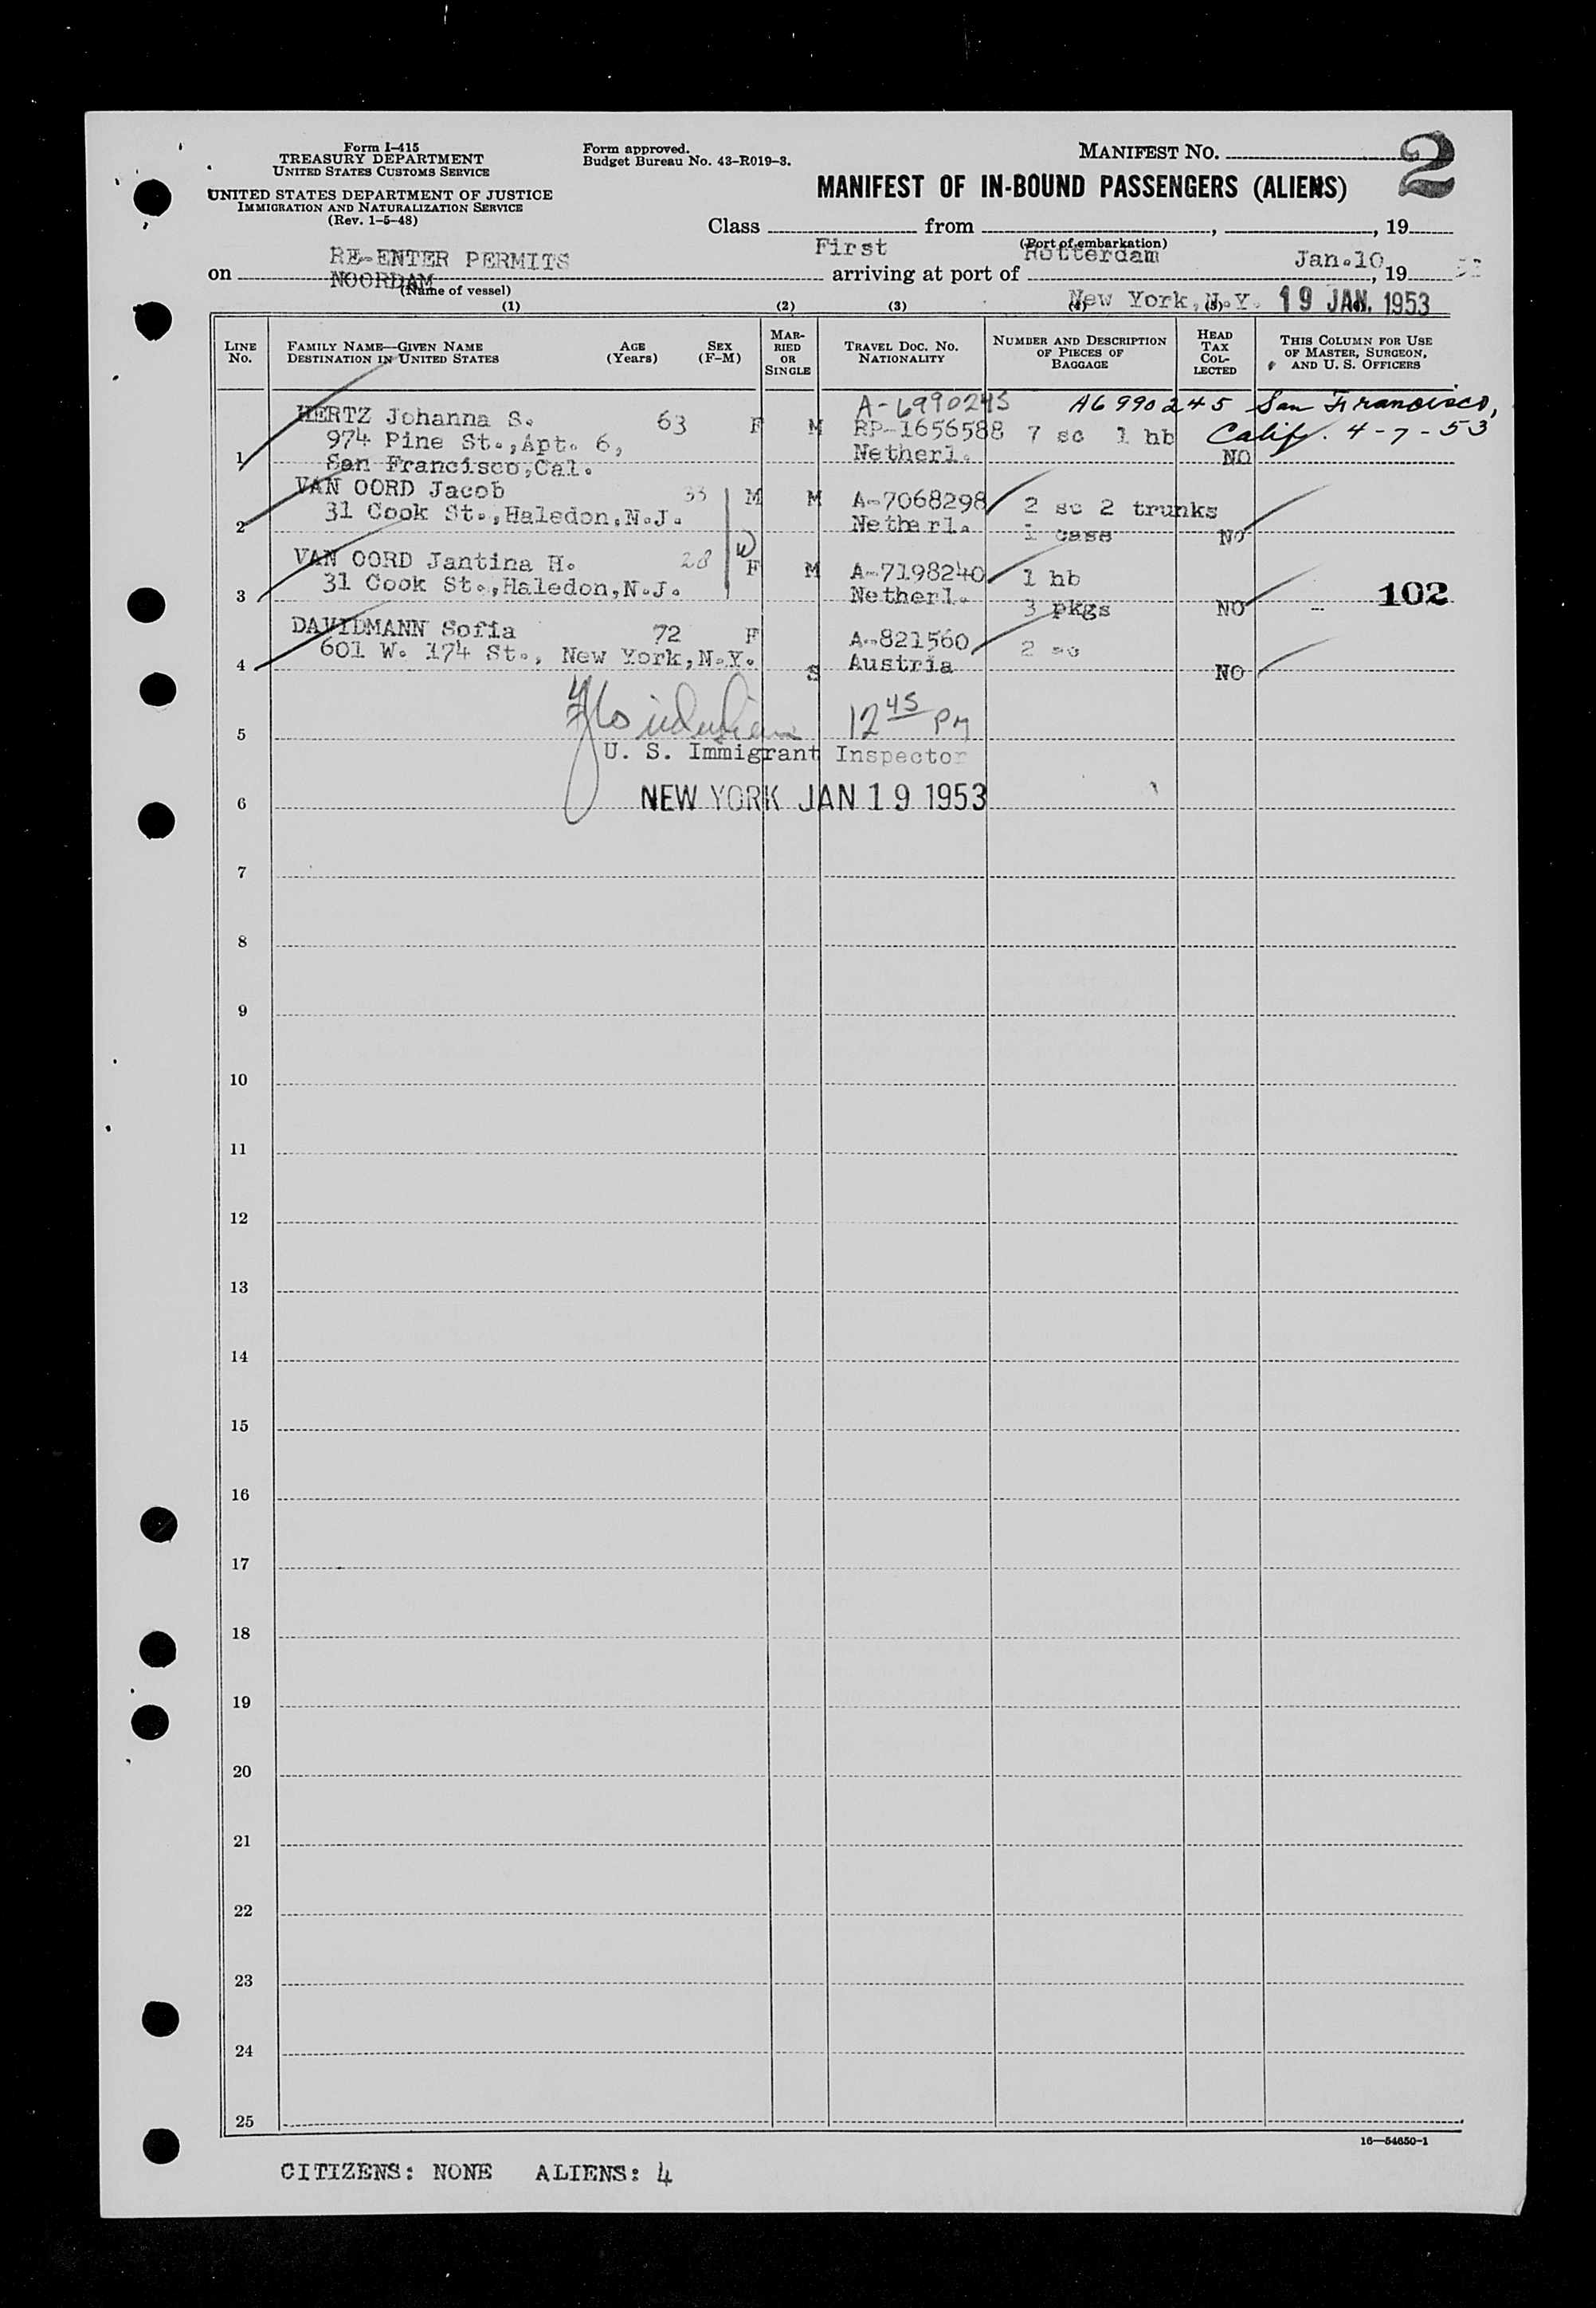 Form I-415
TREASURY DEPARTMENT
UNITED STATES CUSTOMS SERVICE
UNITED STATES DEPARTMENT OF JUSTICE
IMMIGRATION AND NATURALIZATION SERVICE
(Rev. 1-5-48)
Form approved.
Budget Bureau No. 43-R019-3.
MANIFEST NO. 2
MANIFEST OF IN-BOUND PASSENGERS (ALIENS)
Class First from Rotterdam, Jan.10, 19 53
(Port of embarkation)
RE-ENTER PERMITS
on NOORDAM arriving at port of New York, N.Y. 19 JAN. 1953, 19
(Name of vessel)
(1) (2) (3) (4) (5)
LINE No. FAMILY NAME—GIVEN NAME DESTINATION IN UNITED STATES AGE (Years) SEX (F-M) MARRIED OR SINGLE TRAVEL DOC. NO. NATIONALITY NUMBER AND DESCRIPTION OF PIECES OF BAGGAGE HEAD TAX COLLECTED THIS COLUMN FOR USE OF MASTER, SURGEON, AND U. S. OFFICERS
A-6990245 A6990245 San Francisco,
HERTZ Johanna S. 63 F M RP-1656588 7 sc 1 hb Calif. 4-7-53
974 Pine St.,Apt. 6, Netherl. NO
1 San Francisco,Cal.
VAN OORD Jacob 33 M M A-7068298 2 sc 2 trunks
2 31 Cook St.,Haledon,N.J. Netherl. 1 case NO
W
VAN OORD Jantina H. 28 F M A-7198240 1 hb
3 31 Cook St.,Haledon,N.J. Netherl. 3 pkgs NO 102
DAVIDMANN Sofia 72 F A-821560 2 sc
4 601 W. 174 St., New York,N.Y. S Austria NO
5 12 45 PM
U. S. Immigrant Inspector
6 NEW YORK JAN 19 1953
7
8
9
10
11
12
13
14
15
16
17
18
19
20
21
22
23
24
25
16—54650-1
CITIZENS: NONE ALIENS: 4